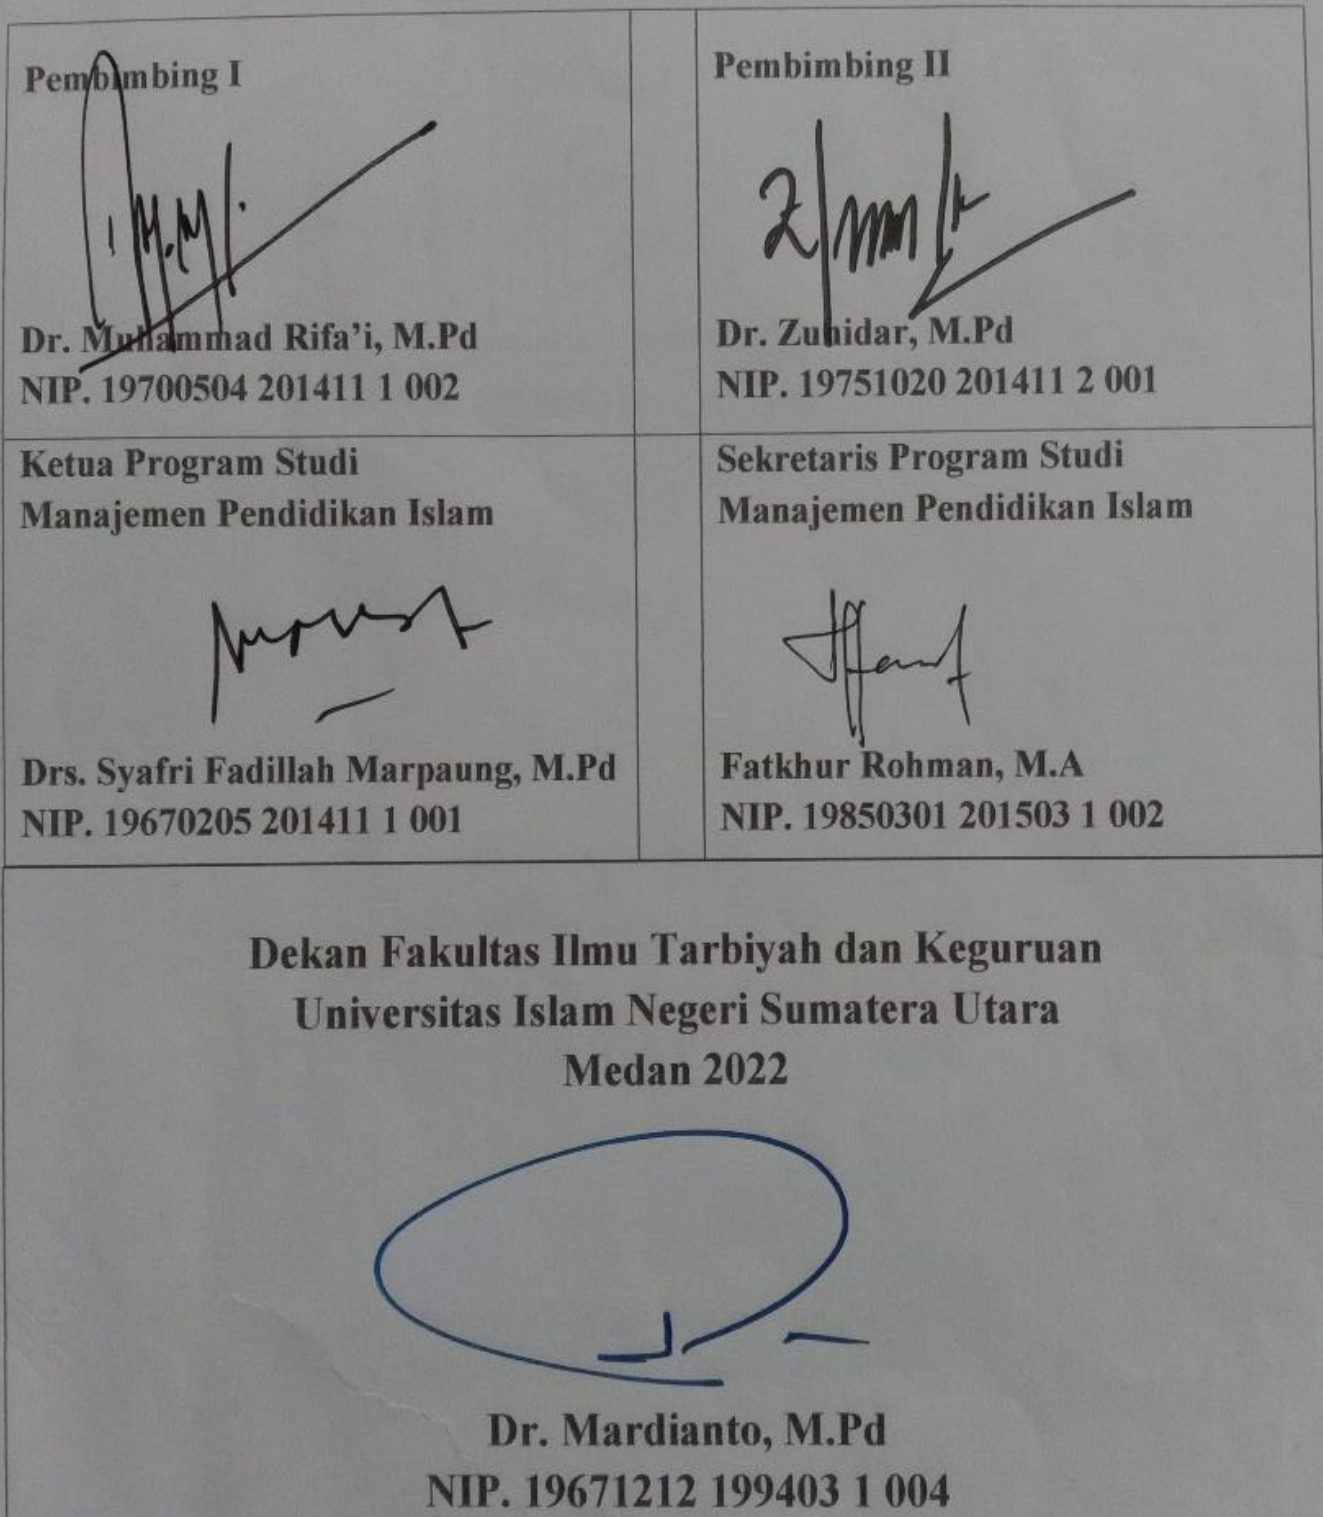 Pembimbing I
Dr. Muhammad Rifa'i, M.Pd
NIP. 19700504 201411 1 002
Pembimbing II
Dr. Zuhidar, M.Pd
NIP. 19751020 201411 2 001
Ketua Program Studi
Manajemen Pendidikan Islam
Drs. Syafri Fadillah Marpaung, M.Pd
NIP. 19670205 201411 1 001
Sekretaris Program Studi
Manajemen Pendidikan Islam
Fatkhur Rohman, M.A
NIP. 19850301 201503 1 002
Dekan Fakultas Ilmu Tarbiyah dan Keguruan
Universitas Islam Negeri Sumatera Utara
Medan 2022
Dr. Mardianto, M.Pd
NIP. 19671212 199403 1 004